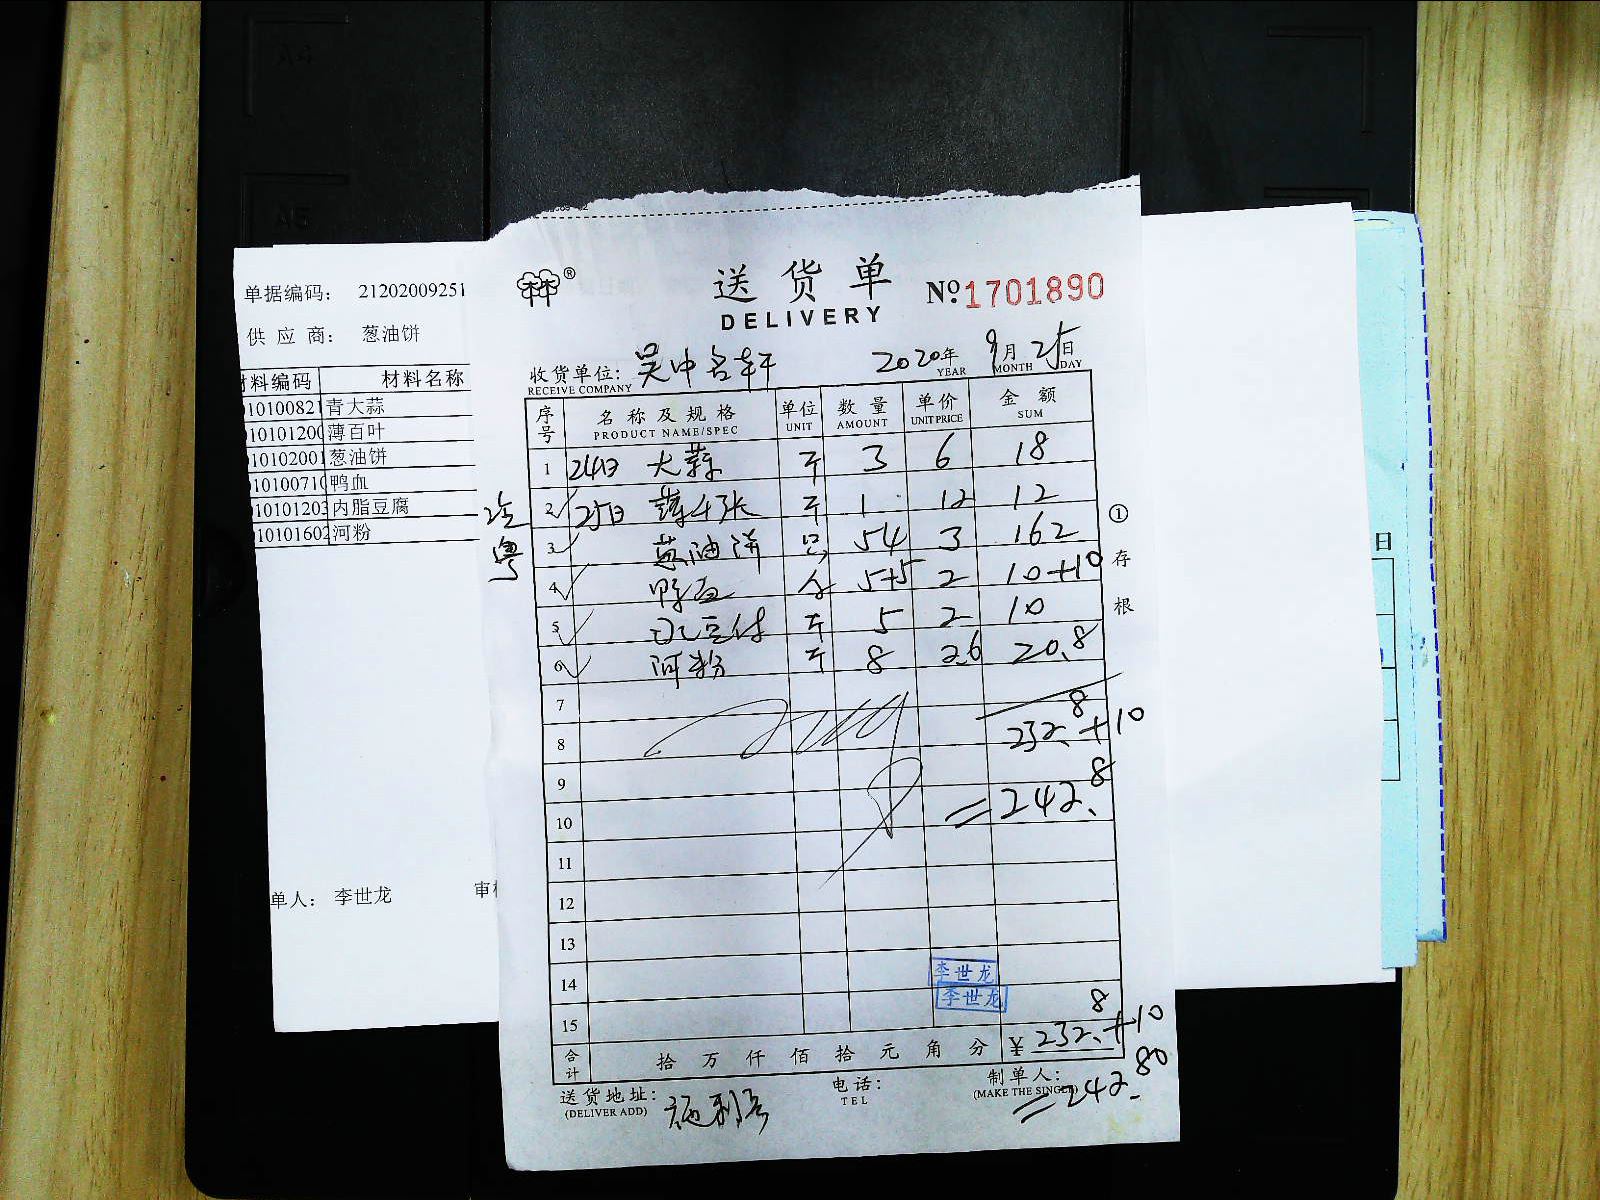 单据编码： 21202009251
供 应 商： 葱油饼
材料编码 材料名称
010100821 青大蒜
010101200 薄百叶
010102001 葱油饼
010100710 鸭血
010101203 内脂豆腐
010101602 河粉
单人： 李世龙
审
®
送货单
DELIVERY
No 1701890
收货单位： 吴中名轩 2020年 9月 25日
RECEIVE COMPANY YEAR MONTH DAY
序号 名称及规格 单位 数量 单价 金额
PRODUCT NAME/SPEC UNIT AMOUNT UNIT PRICE SUM
1 24日 大蒜 斤 3 6 18
2 25日 薄千张 斤 1 12 12
3 葱油饼 只 54 3 162
4 鸭血 5+5 2 10+10
5 豆付 斤 5 2 10
6 河粉 斤 8 2.6 20.8
7
8 232.8+10
9
10 =242.8
11
12
13
14
15
李世龙
李世龙
合计 拾 万 仟 佰 拾 元 角 分 ¥232.8+10
=242.80
送货地址： 电话： 制单人：
(DELIVER ADD) TEL (MAKE THE SINGLE)
粤
①
存
根
日